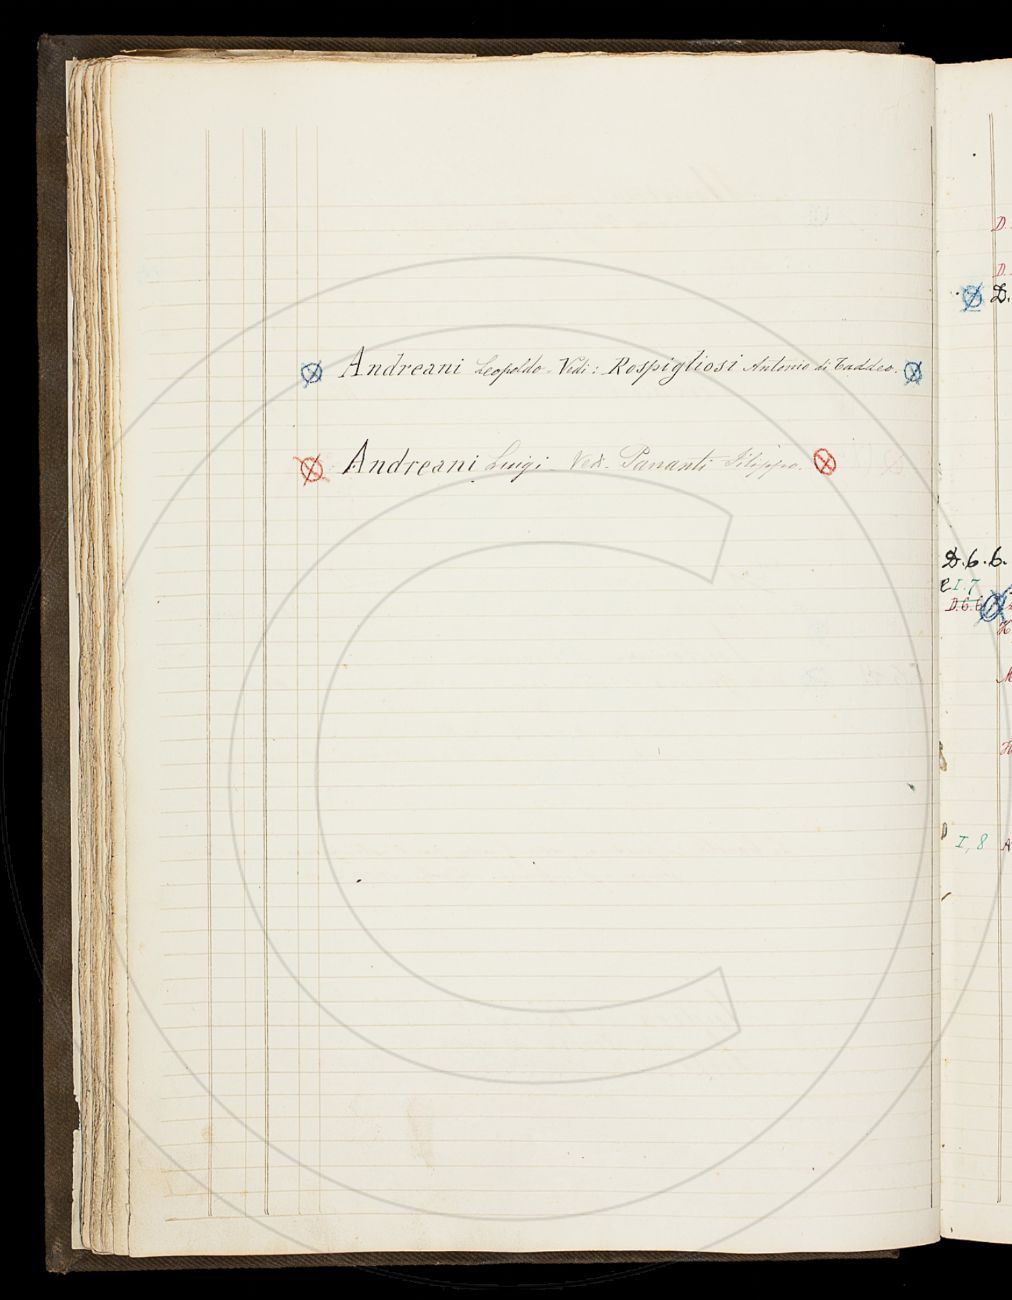 Andreani Leopoldo - Vedi: Rospigliosi Antonio di Taddeo.
Andreani Luigi - Vedi - Pananti Filippo.
D.
D.
D.
D. 6. 6.
e I. 7
D. 6. 6
I, 8